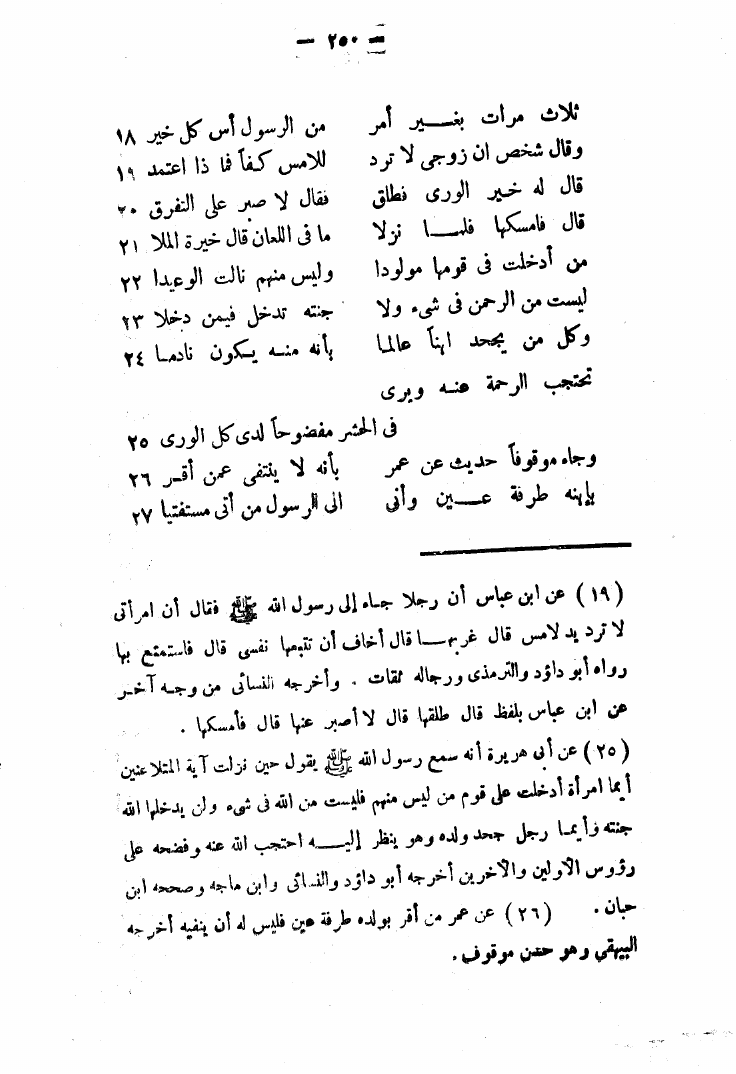 — ٢٥٠ —
ثلاث مرات بغـــير أمر من الرسول أس كل خير ١٨
وقال شخص ان زوجى لا ترد للامس كفاً فما ذا اعتمد ١٩
قال له خـير الورى فطلق فقال لا صبر على التفرق ٢٠
قال فامسكها فلمـــا نزلا ما فى اللعان قال خيرة الملا ٢١
من أدخلت فى قومها مولودا وليس منهم نالت الوعيدا ٢٢
ليست من الرحمن فى شىء ولا جنته تدخل فيمن دخلا ٢٣
وكل من يجحد ابناً عالمـا بأنه منـه يـكون نادمـا ٢٤
تحتجب الرحمة عنـه ويرى
فى الحشر مفضوحاً لدى كل الورى ٢٥
وجاء موقوفاً حديث عن عمر بأنه لا ينتفى عمن أقـر ٢٦
بإبنه طرفة عـــين وأتى الى الرسول من أتى مستفتيا ٢٧
(١٩) عن ابن عباس أن رجلا جـاء إلى رسول الله ﷺ فقال أن امرأتى
لا ترد يد لامس قال غربهـــا قال أخاف أن تتبعها نفسى قال فاستمتع بها
رواه أبو داؤد والترمذى ورجاله ثقات . وأخرجه النسائى من وجـه آخـر
عن ابن عباس بلفظ قال طلقها قال لا أصبر عنها قال فأمسكها .
(٢٥) عن أبى هريرة أنه سمع رسول الله ﷺ يقول حين نزلت آية المتلاعنين
أيما امرأة أدخلت على قوم من ليس منهم فليست من الله فى شىء ولن يدخلها الله
جنته وأيمـا رجل جحد ولده وهو ينظر إليـــه احتجب الله عنه وفضحه على
رؤوس الأولين والآخرين أخرجه أبو داؤد والنسائى وابن ماجه وصححه ابن
حبان . (٢٦) عن عمر من أقر بولده طرفة عين فليس له أن ينفيه أخرجه
البيهقي وهو حسن موقوف .